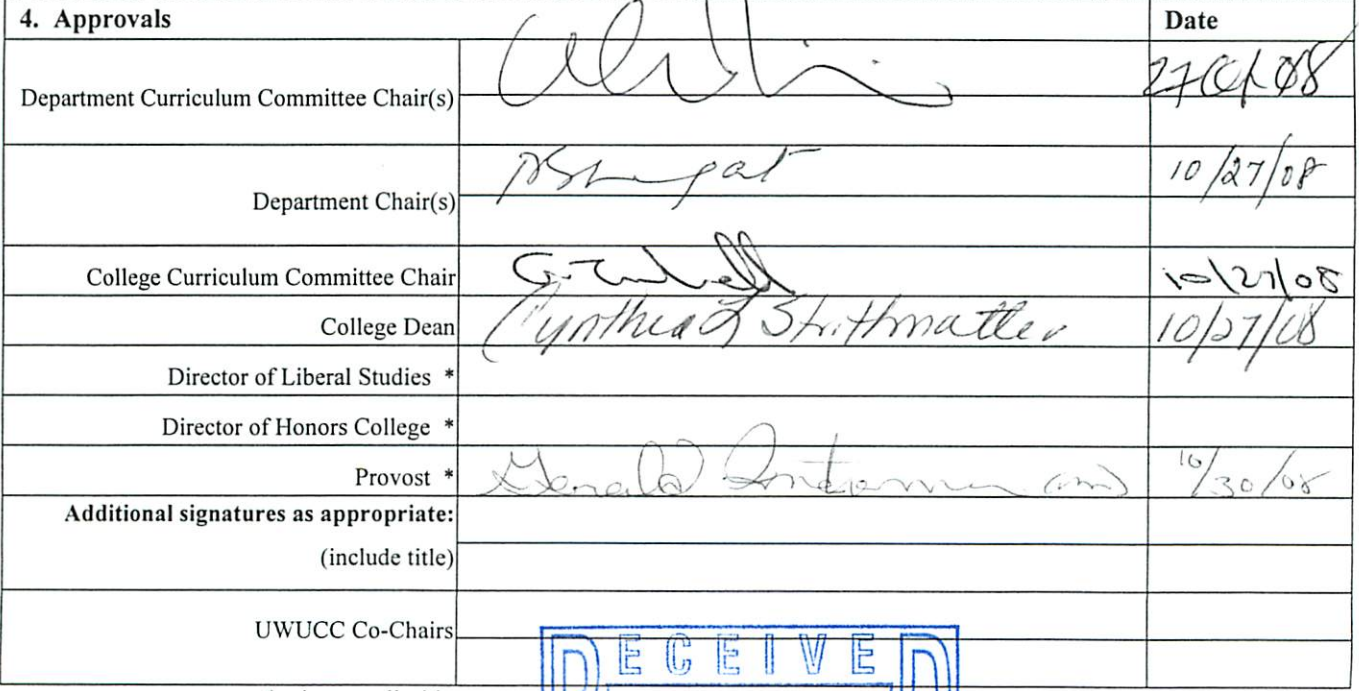 4. Approvals Date
Department Curriculum Committee Chair(s) 27 Oct 08
Department Chair(s) 10/27/08
College Curriculum Committee Chair 10/27/08
College Dean Cynthia L Strithmatter 10/27/08
Director of Liberal Studies *
Director of Honors College *
Provost * Gerald 10/30/08
Additional signatures as appropriate:
(include title)
UWUCC Co-Chairs
RECEIVED